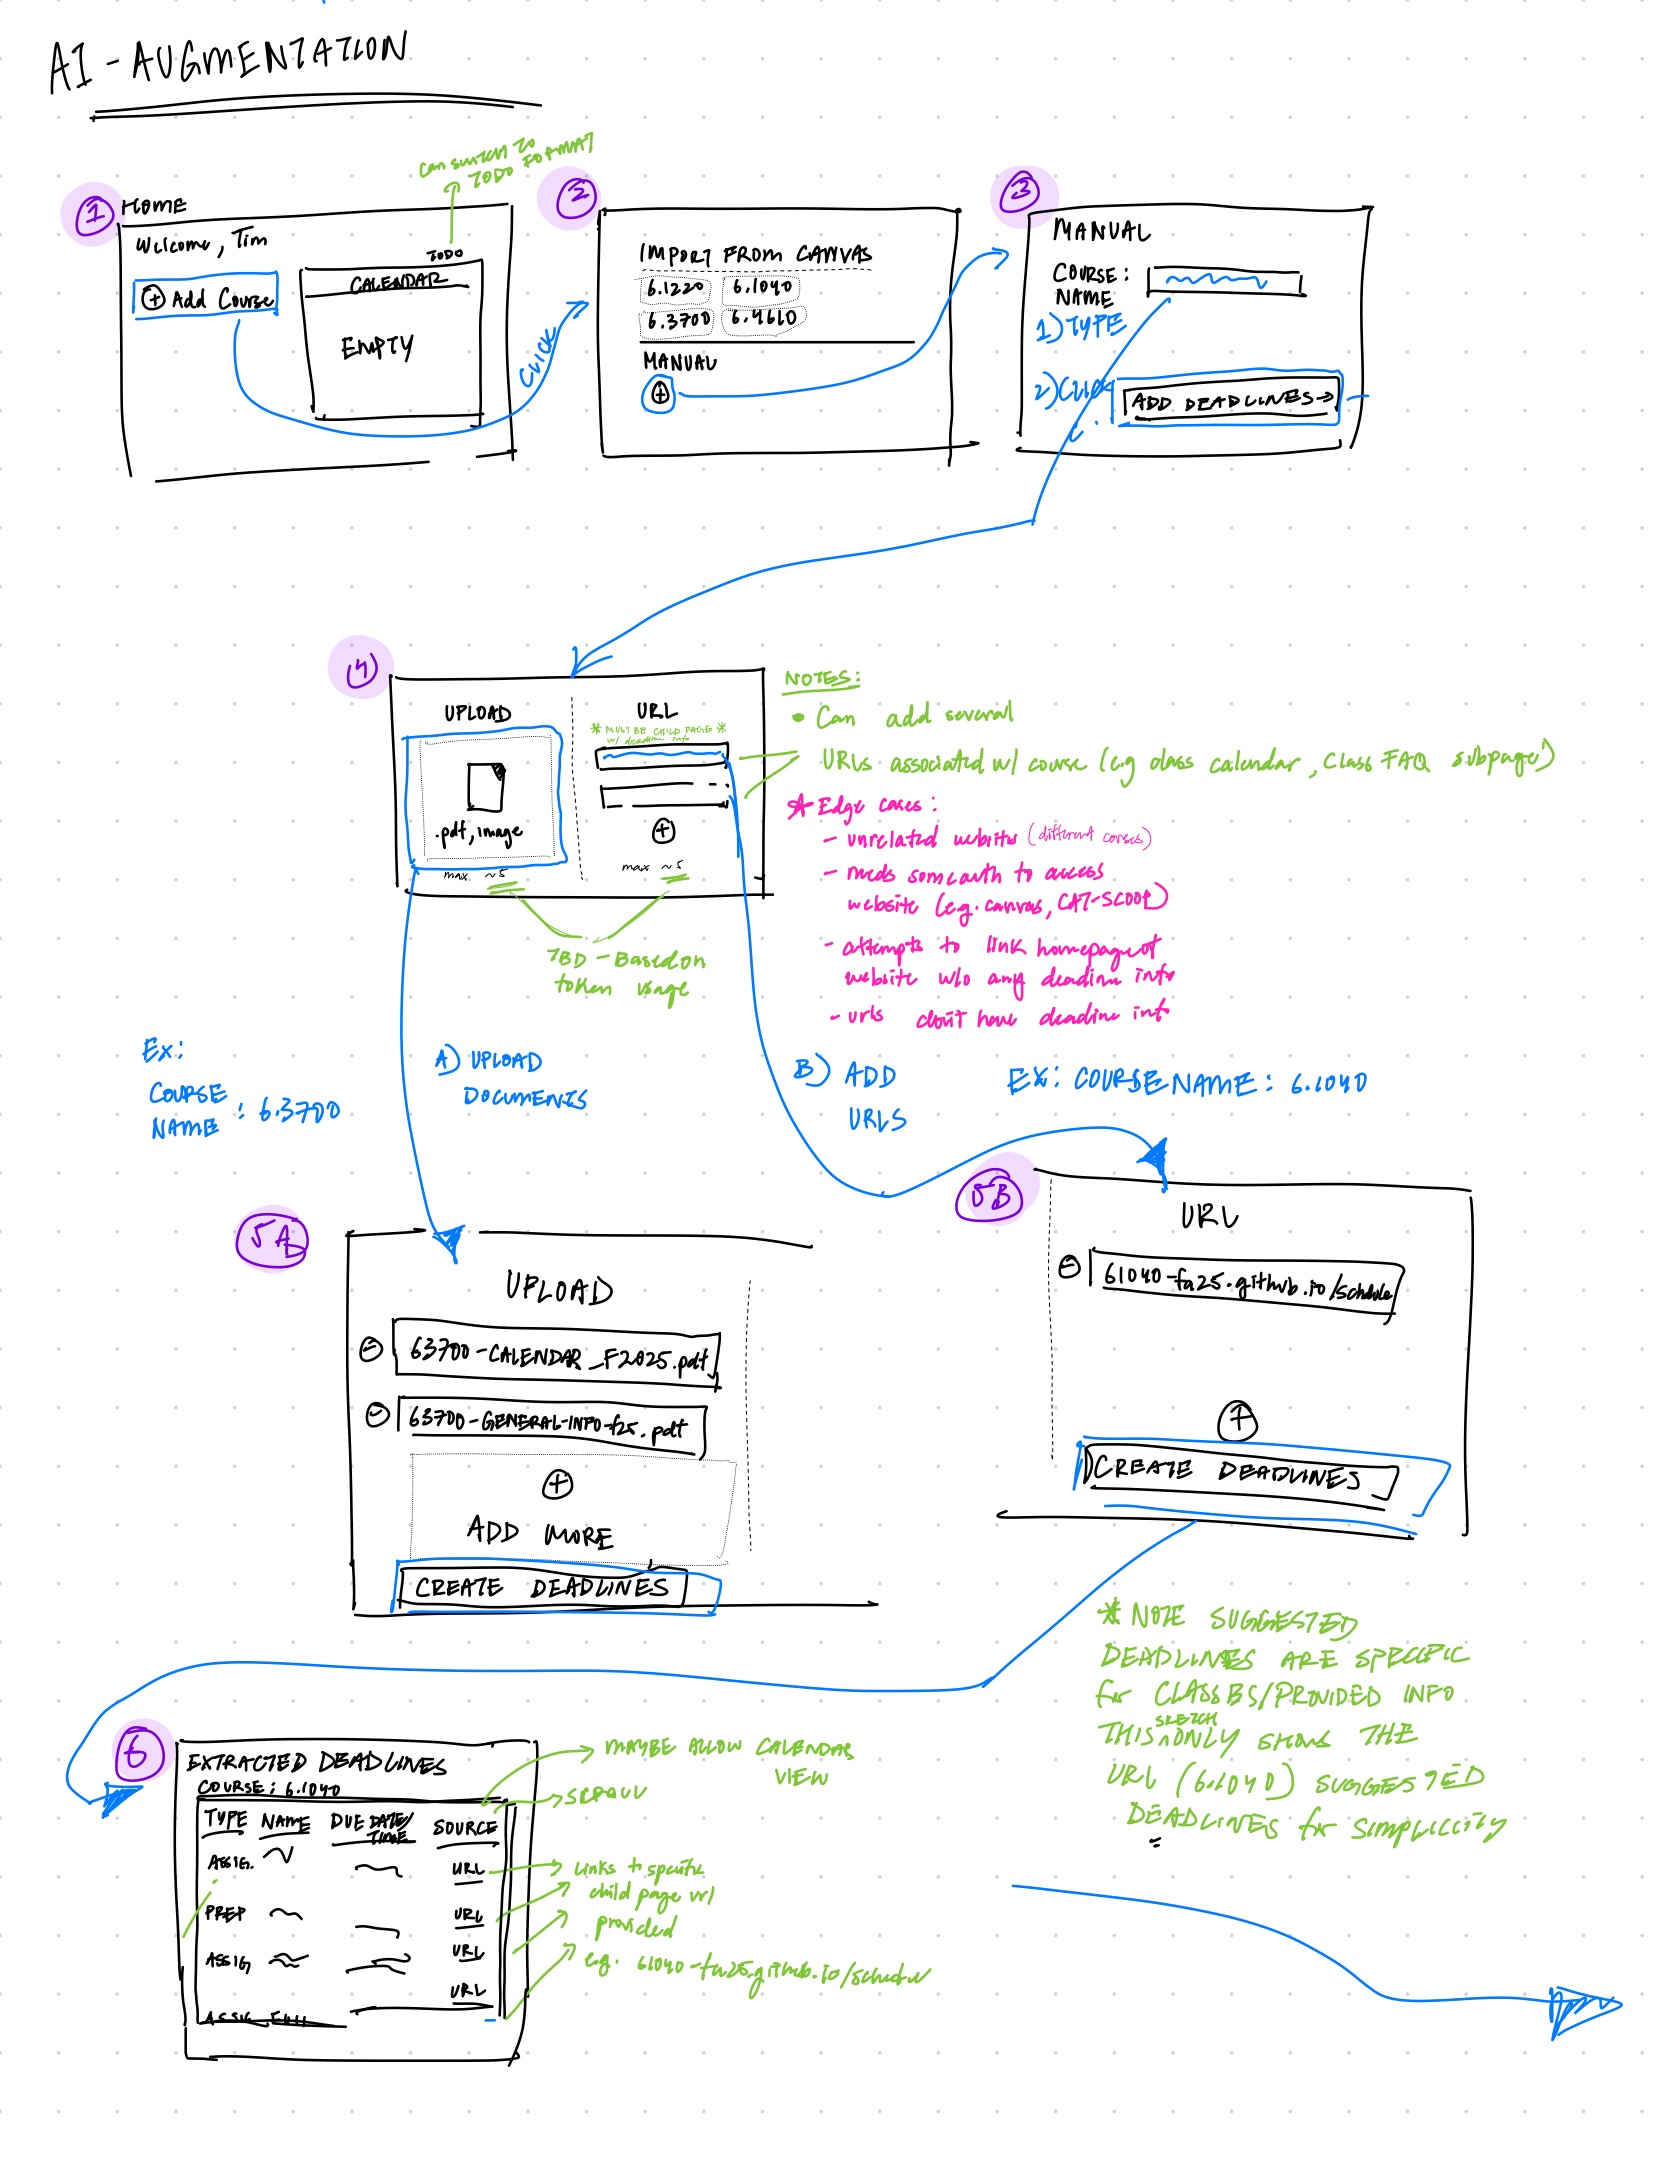 AI-AUGMENTATION
can switch to
TODO FORMAT
1
HOME
Welcome, Tim
+ Add Course
TODO
CALENDAR
EMPTY
CLICK
2
IMPORT FROM CANVAS
6.1220 6.1040
6.3700 6.4610
MANUAL
+
3
MANUAL
COURSE:
NAME
1) TYPE
2) CLICK
ADD DEADLINES→
4
UPLOAD
.pdf, image
max ~5
URL
* MUST BE CHILD PAGES *
w/ deadline info
+
max ~5
TBD - Based on
token usage
NOTES:
• Can add several
URLs associated w/ course (e.g class calendar, Class FAQ subpage)
* Edge cases:
- unrelated website (different courses)
- needs some auth to access
website (e.g. canvas, CAT-SCOOP)
- attempts to link homepage of
website w/o any deadline info
- urls don't have deadline info
Ex:
COURSE
NAME : 6.3700
A) UPLOAD
DOCUMENTS
B) ADD
URLS
EX: COURSE NAME: 6.1040
5A
UPLOAD
63700-CALENDAR_F2025.pdf
63700-GENERAL-INFO-f25.pdf
+
ADD MORE
CREATE DEADLINES
5B
URL
61040-fa25.github.io/schedule
+
CREATE DEADLINES
* NOTE SUGGESTED
DEADLINES ARE SPECIFIC
for CLASSES/PROVIDED INFO
THIS SKETCH ONLY SHOWS THE
URL (6.1040) SUGGESTED
DEADLINES for SIMPLICITY
6
EXTRACTED DEADLINES
COURSE: 6.1040
TYPE NAME DUE DATE/TIME SOURCE
ASSIG. URL
PREP URL
ASSIG URL
URL
ASSIG
MAYBE ALLOW CALENDAR
VIEW
SCROLL
links to specific
child page url
provided
e.g. 61040-fa25.github.io/schedule